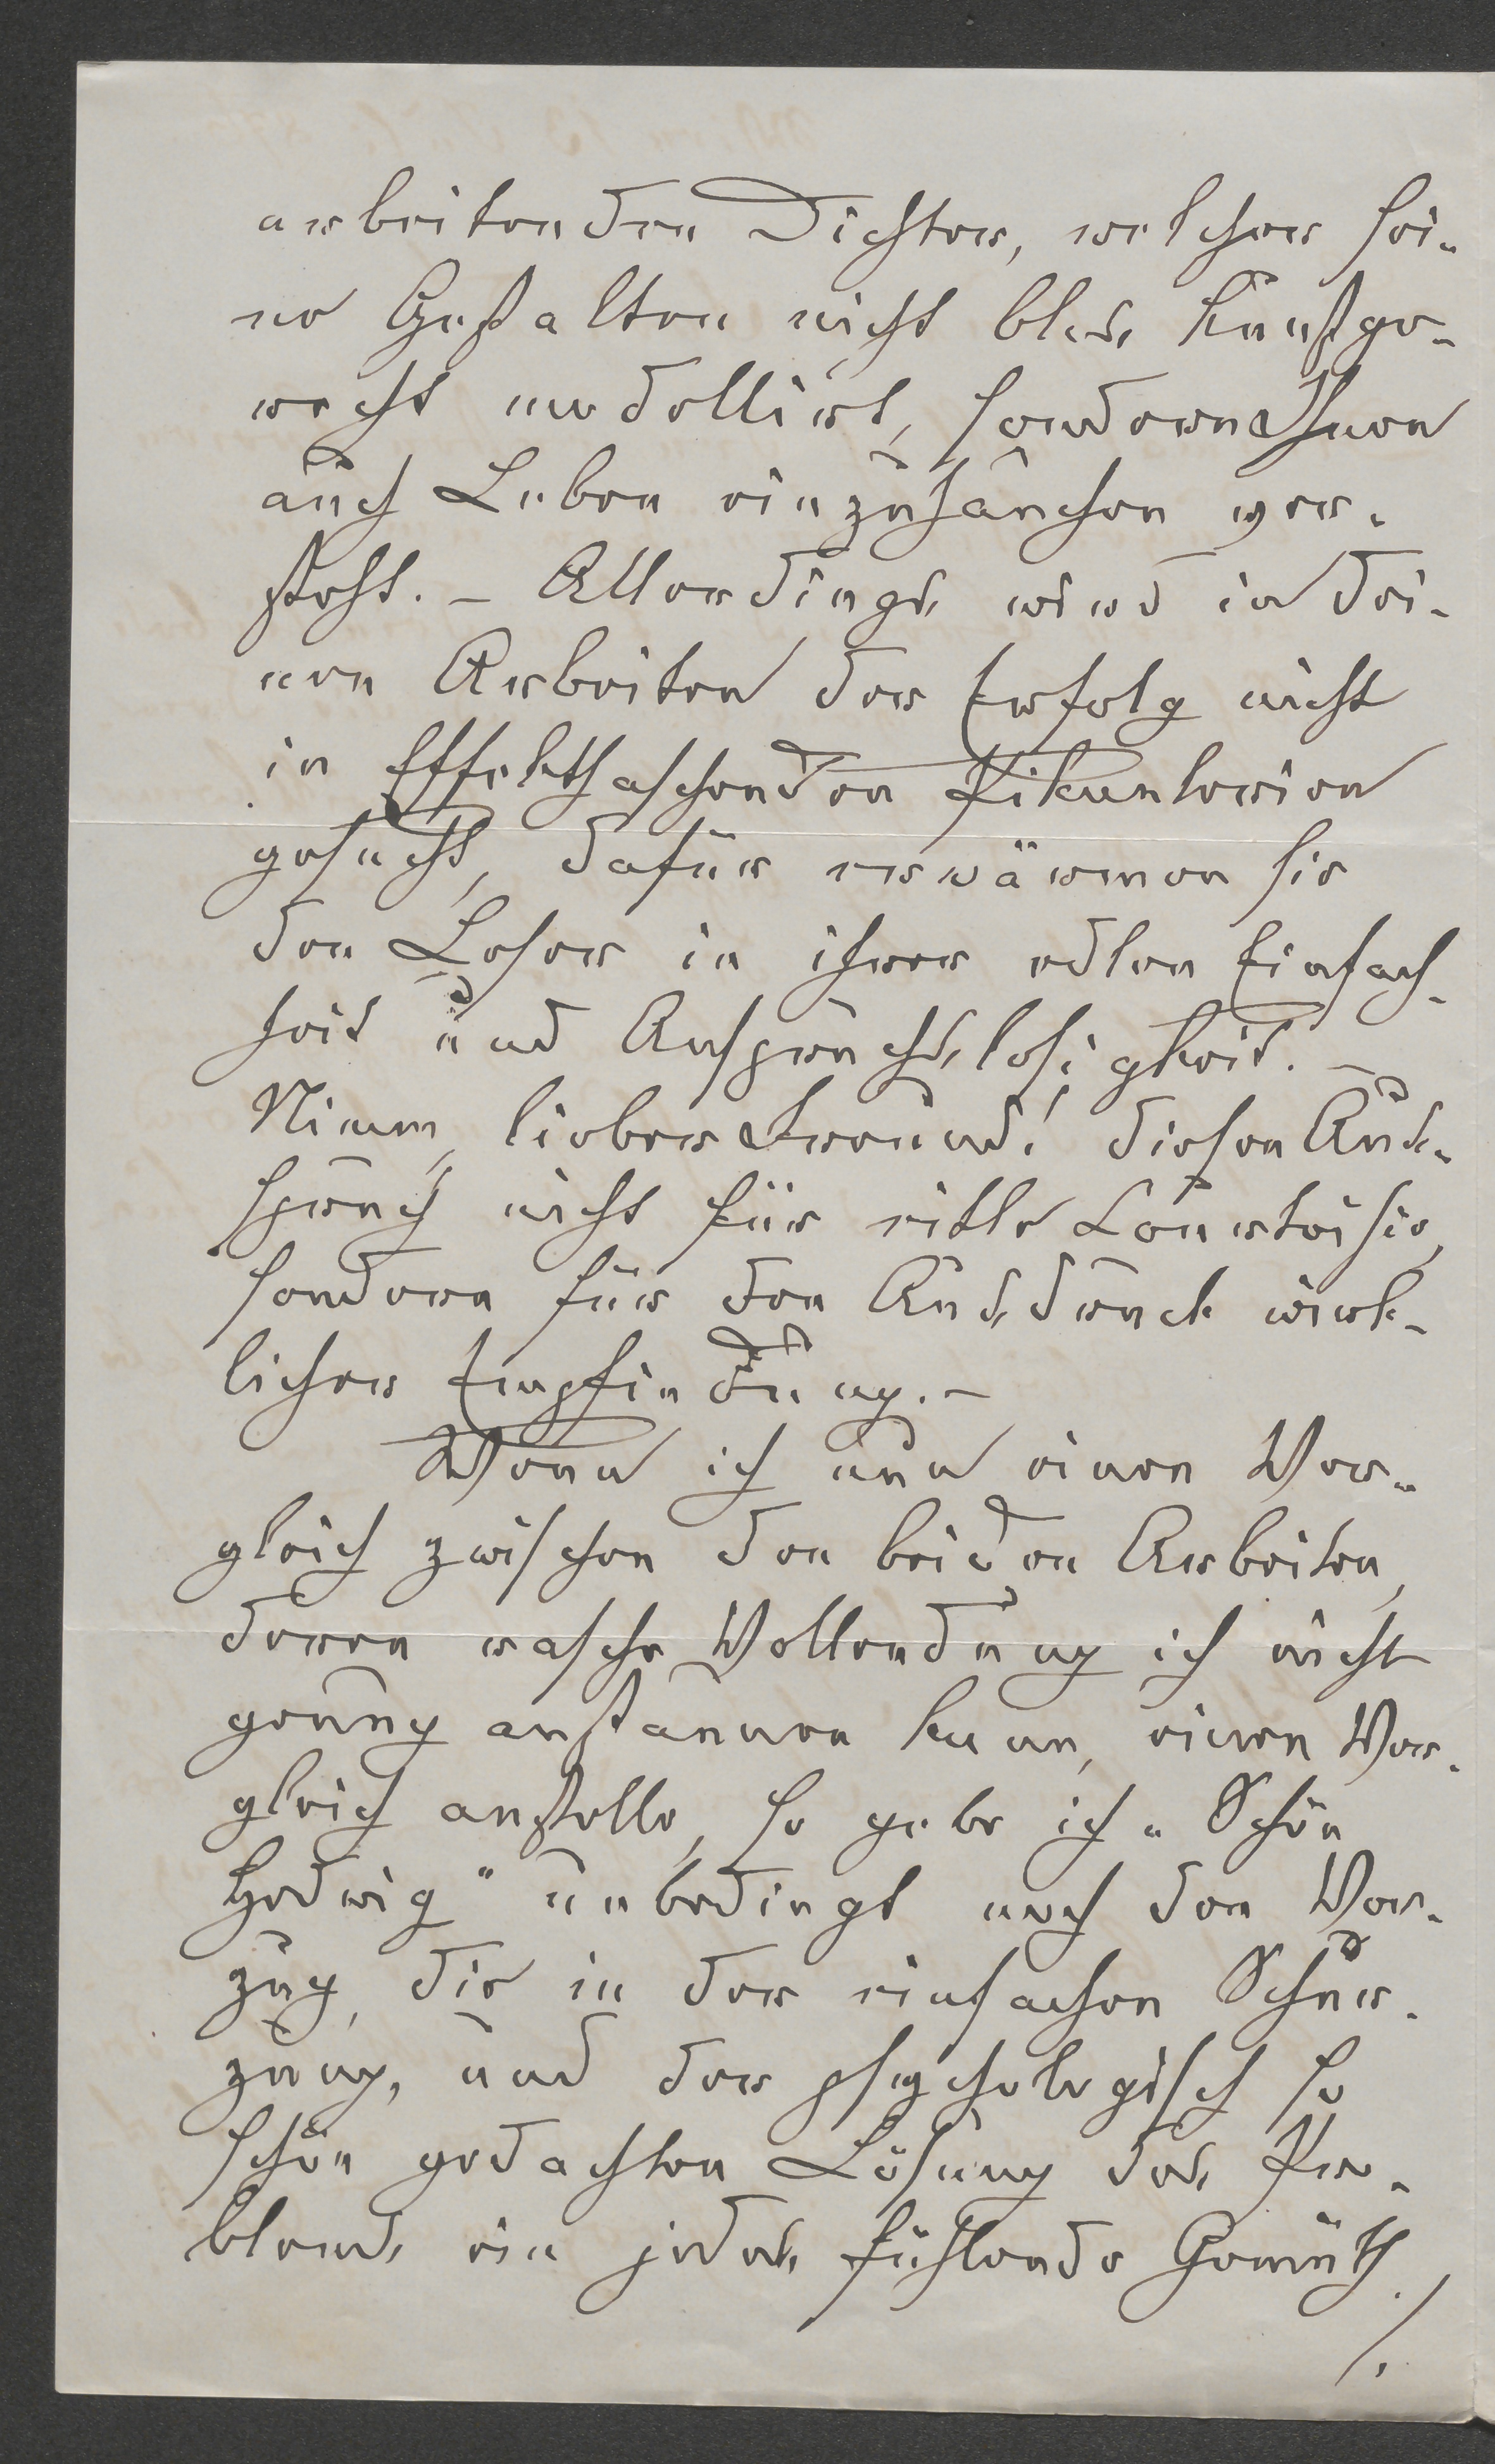 arbeitenden Dichter, welcher sei-
ne Gestalten nicht blos kunstge-
recht modellirt, sondern Ihnen
auch Leben einzuhauchen ver-
steht. – Allerdings wird in dei-
nen Arbeiten der Erfolg nicht
in Effekthaschenden Pikanterien
gesucht, dafür erwärmen sie
den Leser in ihrer edlen Einfach-
heit und Anspruchslosigkeit. –
Nimm, lieber Freund! diesen Aus-
spruch nicht für eitle Courtoisie,
sondern für den Ausdruck wirk-
licher Empfindung. –
Wenn ich nun einen Ver-
gleich zwischen den beiden Arbeiten,
deren rasche Vollendung ich nicht
genung anstaunen kann, einen Ver-
gleich anstelle, so gebe ich „Schön
Hedwig“ unbedingt noch den Vor-
zug, die in der einfachen Schür-
zung, und der psychologisch so
schön gedachten Lösung des Pro-
blems ein jedes fühlende Gemüth
/.